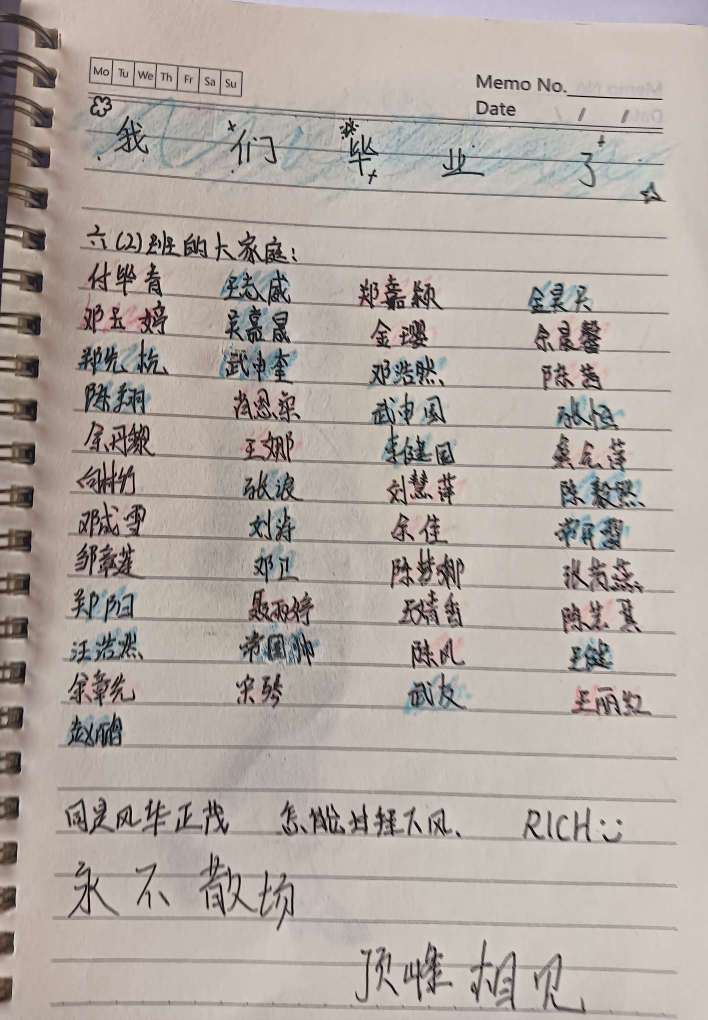 Mo Tu We Th Fr Sa Su
Memo No.
Date / /
我们毕业了
六(2)班的大家庭:
付毕青 王志威 郑嘉颖 金昊天
邓玉婷 吴嘉晟 金璎 余晨馨
郑先杭 武申奎 邓浩然
陈翔 肖恩梁 武申国 张恒
王娜 李健国
张浪 刘慧萍 陈毅然
邓成雪 刘涛 余佳
邹章莲 邓卫 陈梦娜
郑阳 聂雨婷 王婧香
汪浩然 常国帅 陈风 王健
余章先 宋琴 武友 王丽红
赵鹏
同是风华正茂 怎能甘拜下风、 RICH
永不散场
顶峰相见